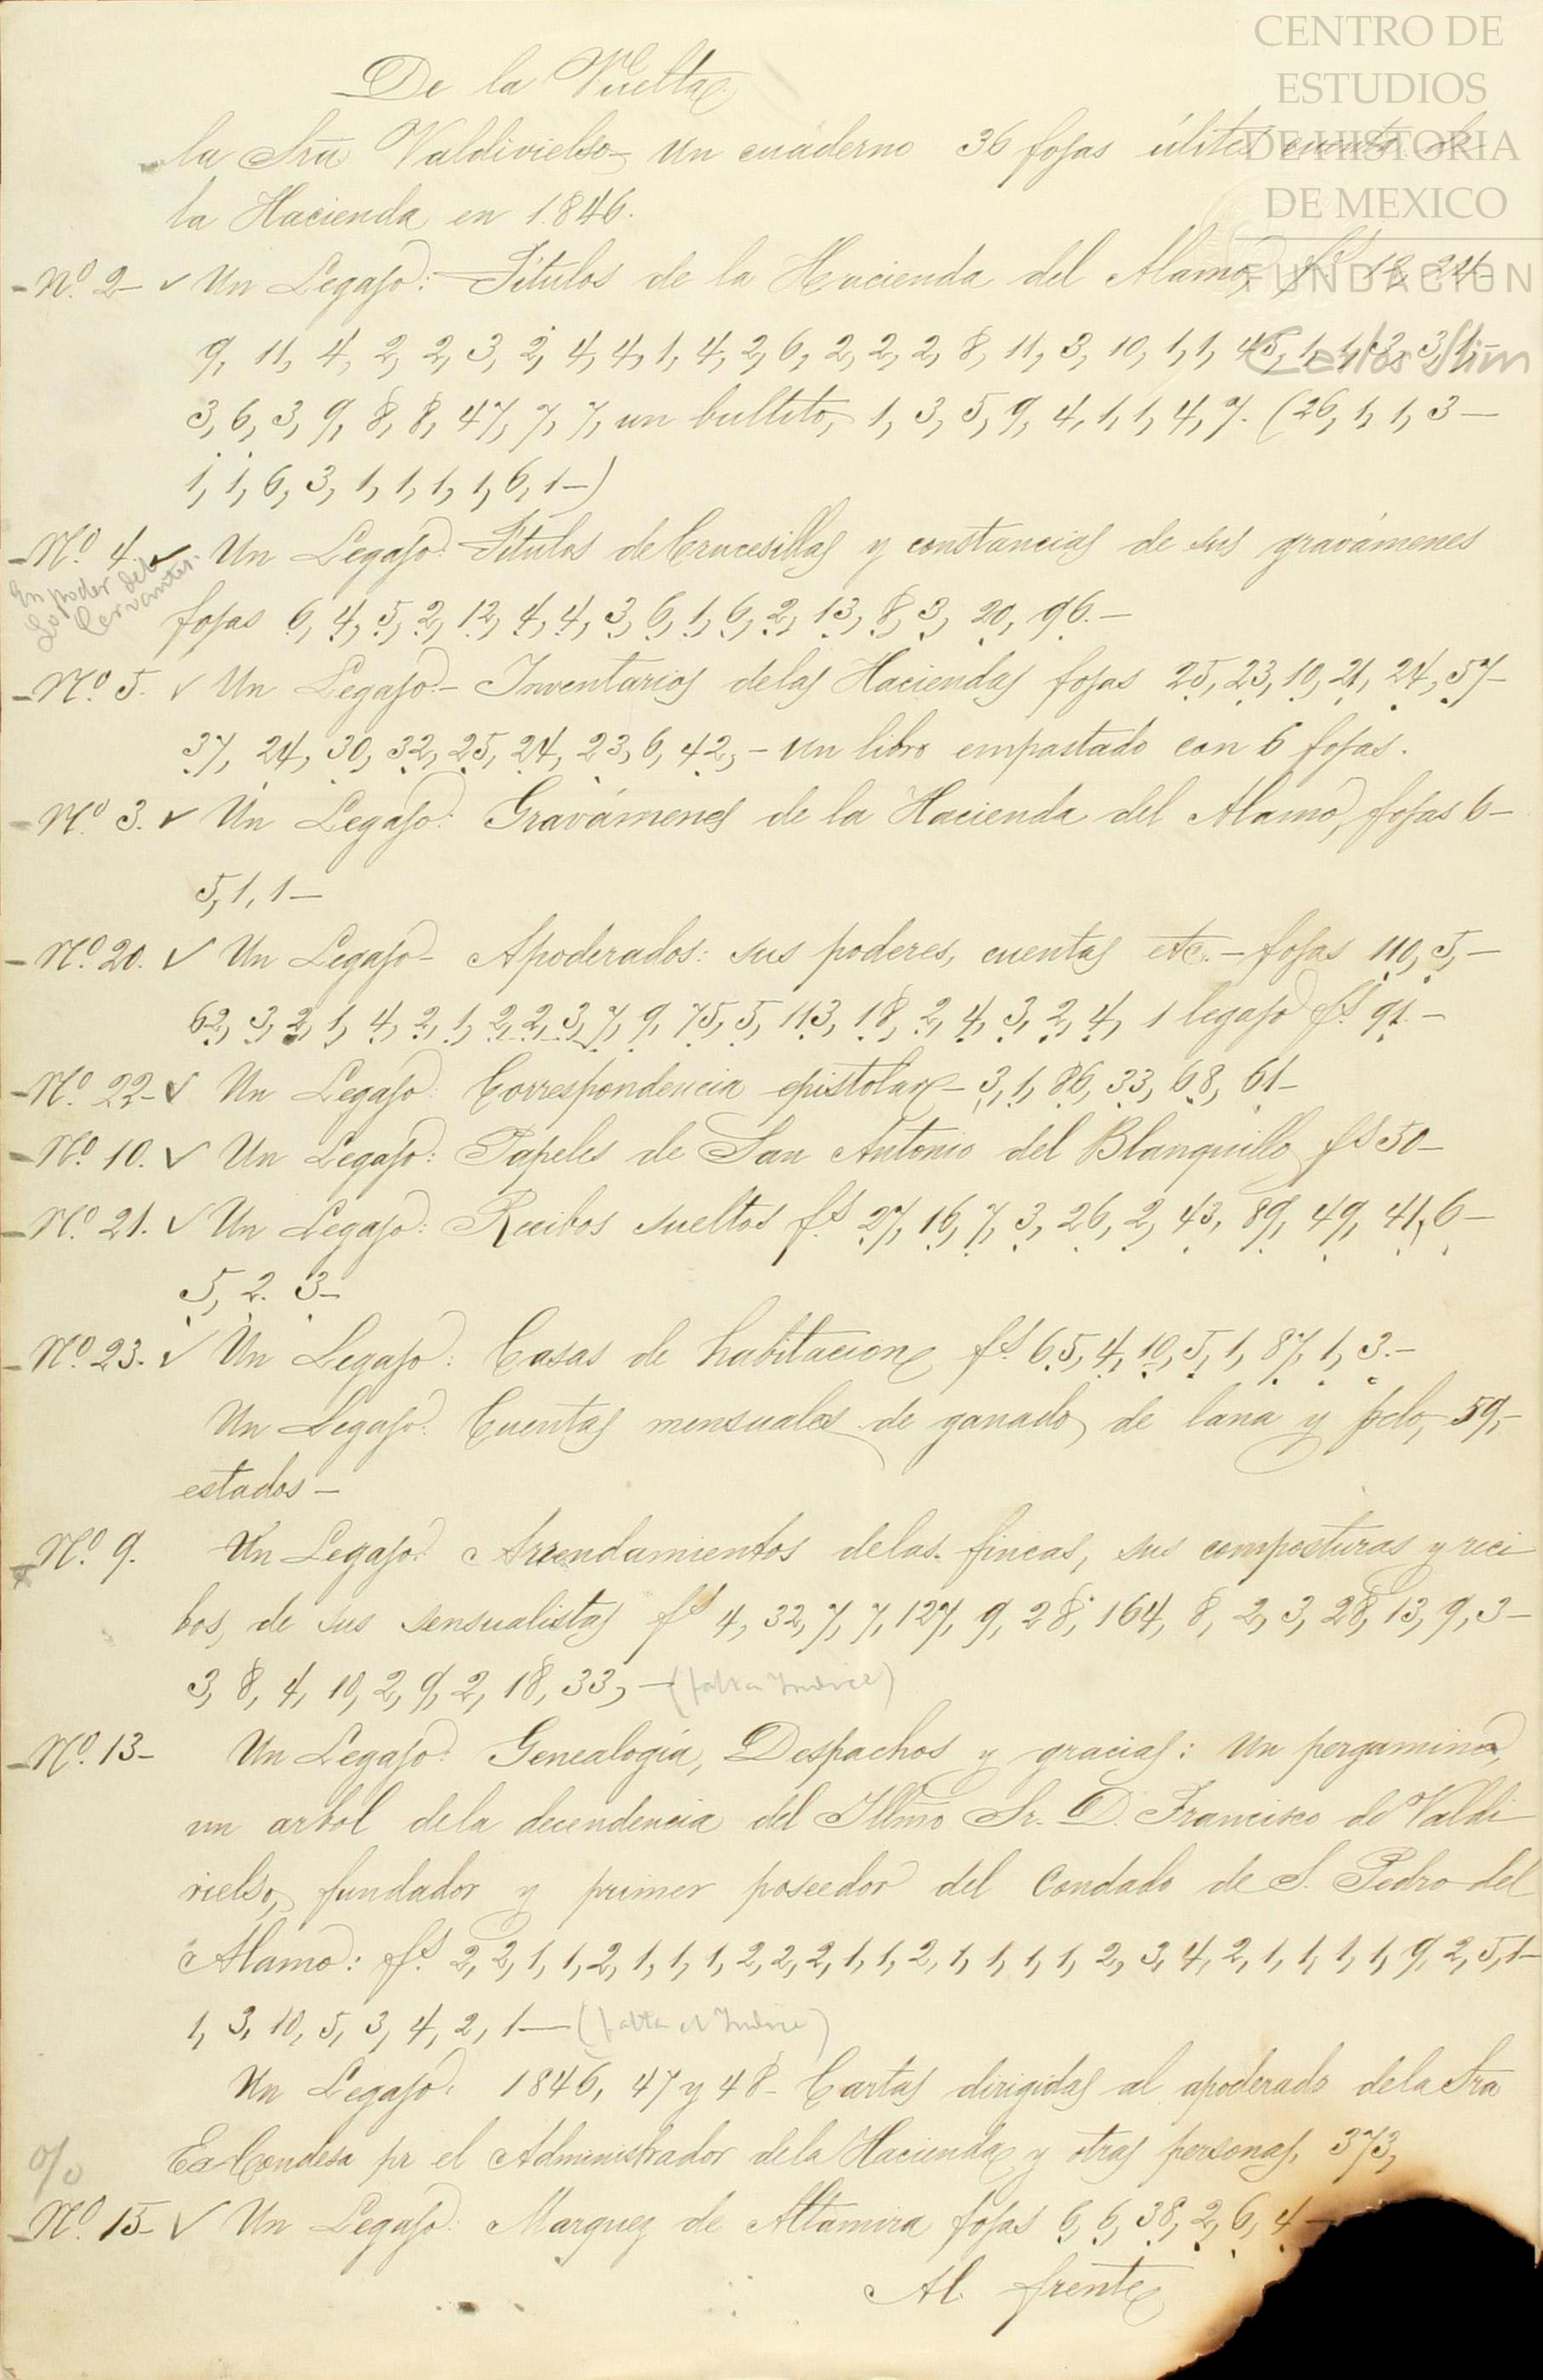 CENTRO DE
ESTUDIOS
DE HISTORIA
DE MEXICO
FUNDACION
Carlos Slim
De la Vuelta
la Sra Valdivielso - Un cuaderno 36 fojas útiles cuenta de
la Hacienda en 1846.
- No. 2 - ✓ Un Legajo: - Titulos de la Hacienda del Alamo,
9, 11, 4, 2, 2, 3, 2, 4, 4, 1, 4, 2, 6, 2, 2, 2, 8, 11, 3, 10, 1, 1, 45, 1, 1,
3, 6, 3, 9, 8, 8, 47, 7, 7, un bultito, 1, 3, 5, 9, 4, 1, 1, 4, 7. (26, 1, 1, 3 —
1, 1, 6, 3, 1, 1, 1, 1, 6, 1 —)
- No. 4. ✓ - Un Legajo: Titulos de Crucesillas y constancias de sus gravámenes
En poder del
Lo Cervantes.
fojas 6, 4, 5, 2, 12, 4, 4, 3, 6, 1, 6, 2, 13, 8, 3, 20, 96. —
- No. 5. ✓ Un Legajo: - Inventarios delas Haciendas fojas 25, 23, 10, 21, 24, 57 -
37, 24, 30, 32, 25, 24, 23, 6, 42, - Un libro empastado con 6 fojas.
- No. 3. ✓ Un Legajo: Gravámenes de la Hacienda del Alamo, fojas 6 -
5, 1, 1 —
- No. 20. ✓ Un Legajo - Apoderados: sus poderes, cuentas etc. - fojas 110, 5, -
62, 3, 2, 1, 4, 2, 1, 2, 2, 3, 7, 9, 75, 5, 113, 18, 2, 4, 3, 2, 4, 1 legajo fs. 91. -
- No. 22 - ✓ Un Legajo: Correspondencia epistolar - 3, 1, 86, 33, 68, 61 -
- No. 10. ✓ Un Legajo: Papeles de San Antonio del Blanquillo fs 50 -
- No. 21. ✓ Un Legajo: Recibos sueltos fs. 27, 16, 7, 3, 26, 2, 43, 89, 49, 41, 6 -
5, 2. 3 -
- No. 23. ✓ Un Legajo: Casas de habitacion fs. 65, 4, 10, 5, 1, 87, 1, 3. -
Un Legajo: Cuentas mensuales de ganado de lana y pelo, 59, -
estados -
No. 9. Un Legajo: Arrendamientos delas fincas, sus composturas y reci
bos, de sus sensualistas fs 4, 32, 7, 7, 127, 9, 28, 164, 8, 2, 3, 28, 13, 9, 3 -
3, 8, 4, 10, 2, 9, 2, 18, 33, - (falta Indice)
- No. 13 - Un Legajo: Genealogía, Despachos y gracias: Un pergamino,
un arbol dela decendencia del Illmo Sr. D. Francisco de Valdi
vielso, fundador y primer poseedor del Condado de S. Pedro del
Alamo: fs. 2, 2, 1, 1, 2, 1, 1, 1, 2, 2, 2, 1, 1, 2, 1, 1, 1, 1, 2, 3, 4, 2, 1, 1, 1, 1, 9, 2, 5, 1 -
1, 3, 10, 5, 3, 4, 2, 1 — (falta el Indice)
Un Legajo: 1846, 47 y 48 - Cartas dirigidas al apoderado dela Sra
Ex Condesa pr el Administrador dela Hacienda y otras personas, 373,
%
- No. 15 - ✓ Un Legajo: Marquez de Altamira fojas 6, 6, 38, 2, 6, 4 -
Al frente